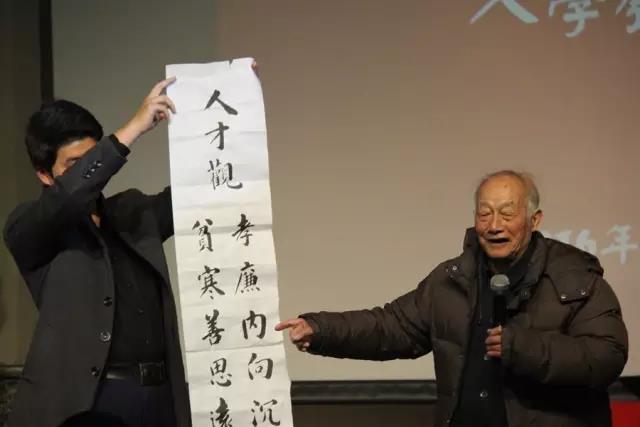 人才觀
孝廉内向沉
貧寒善思遠
學
年